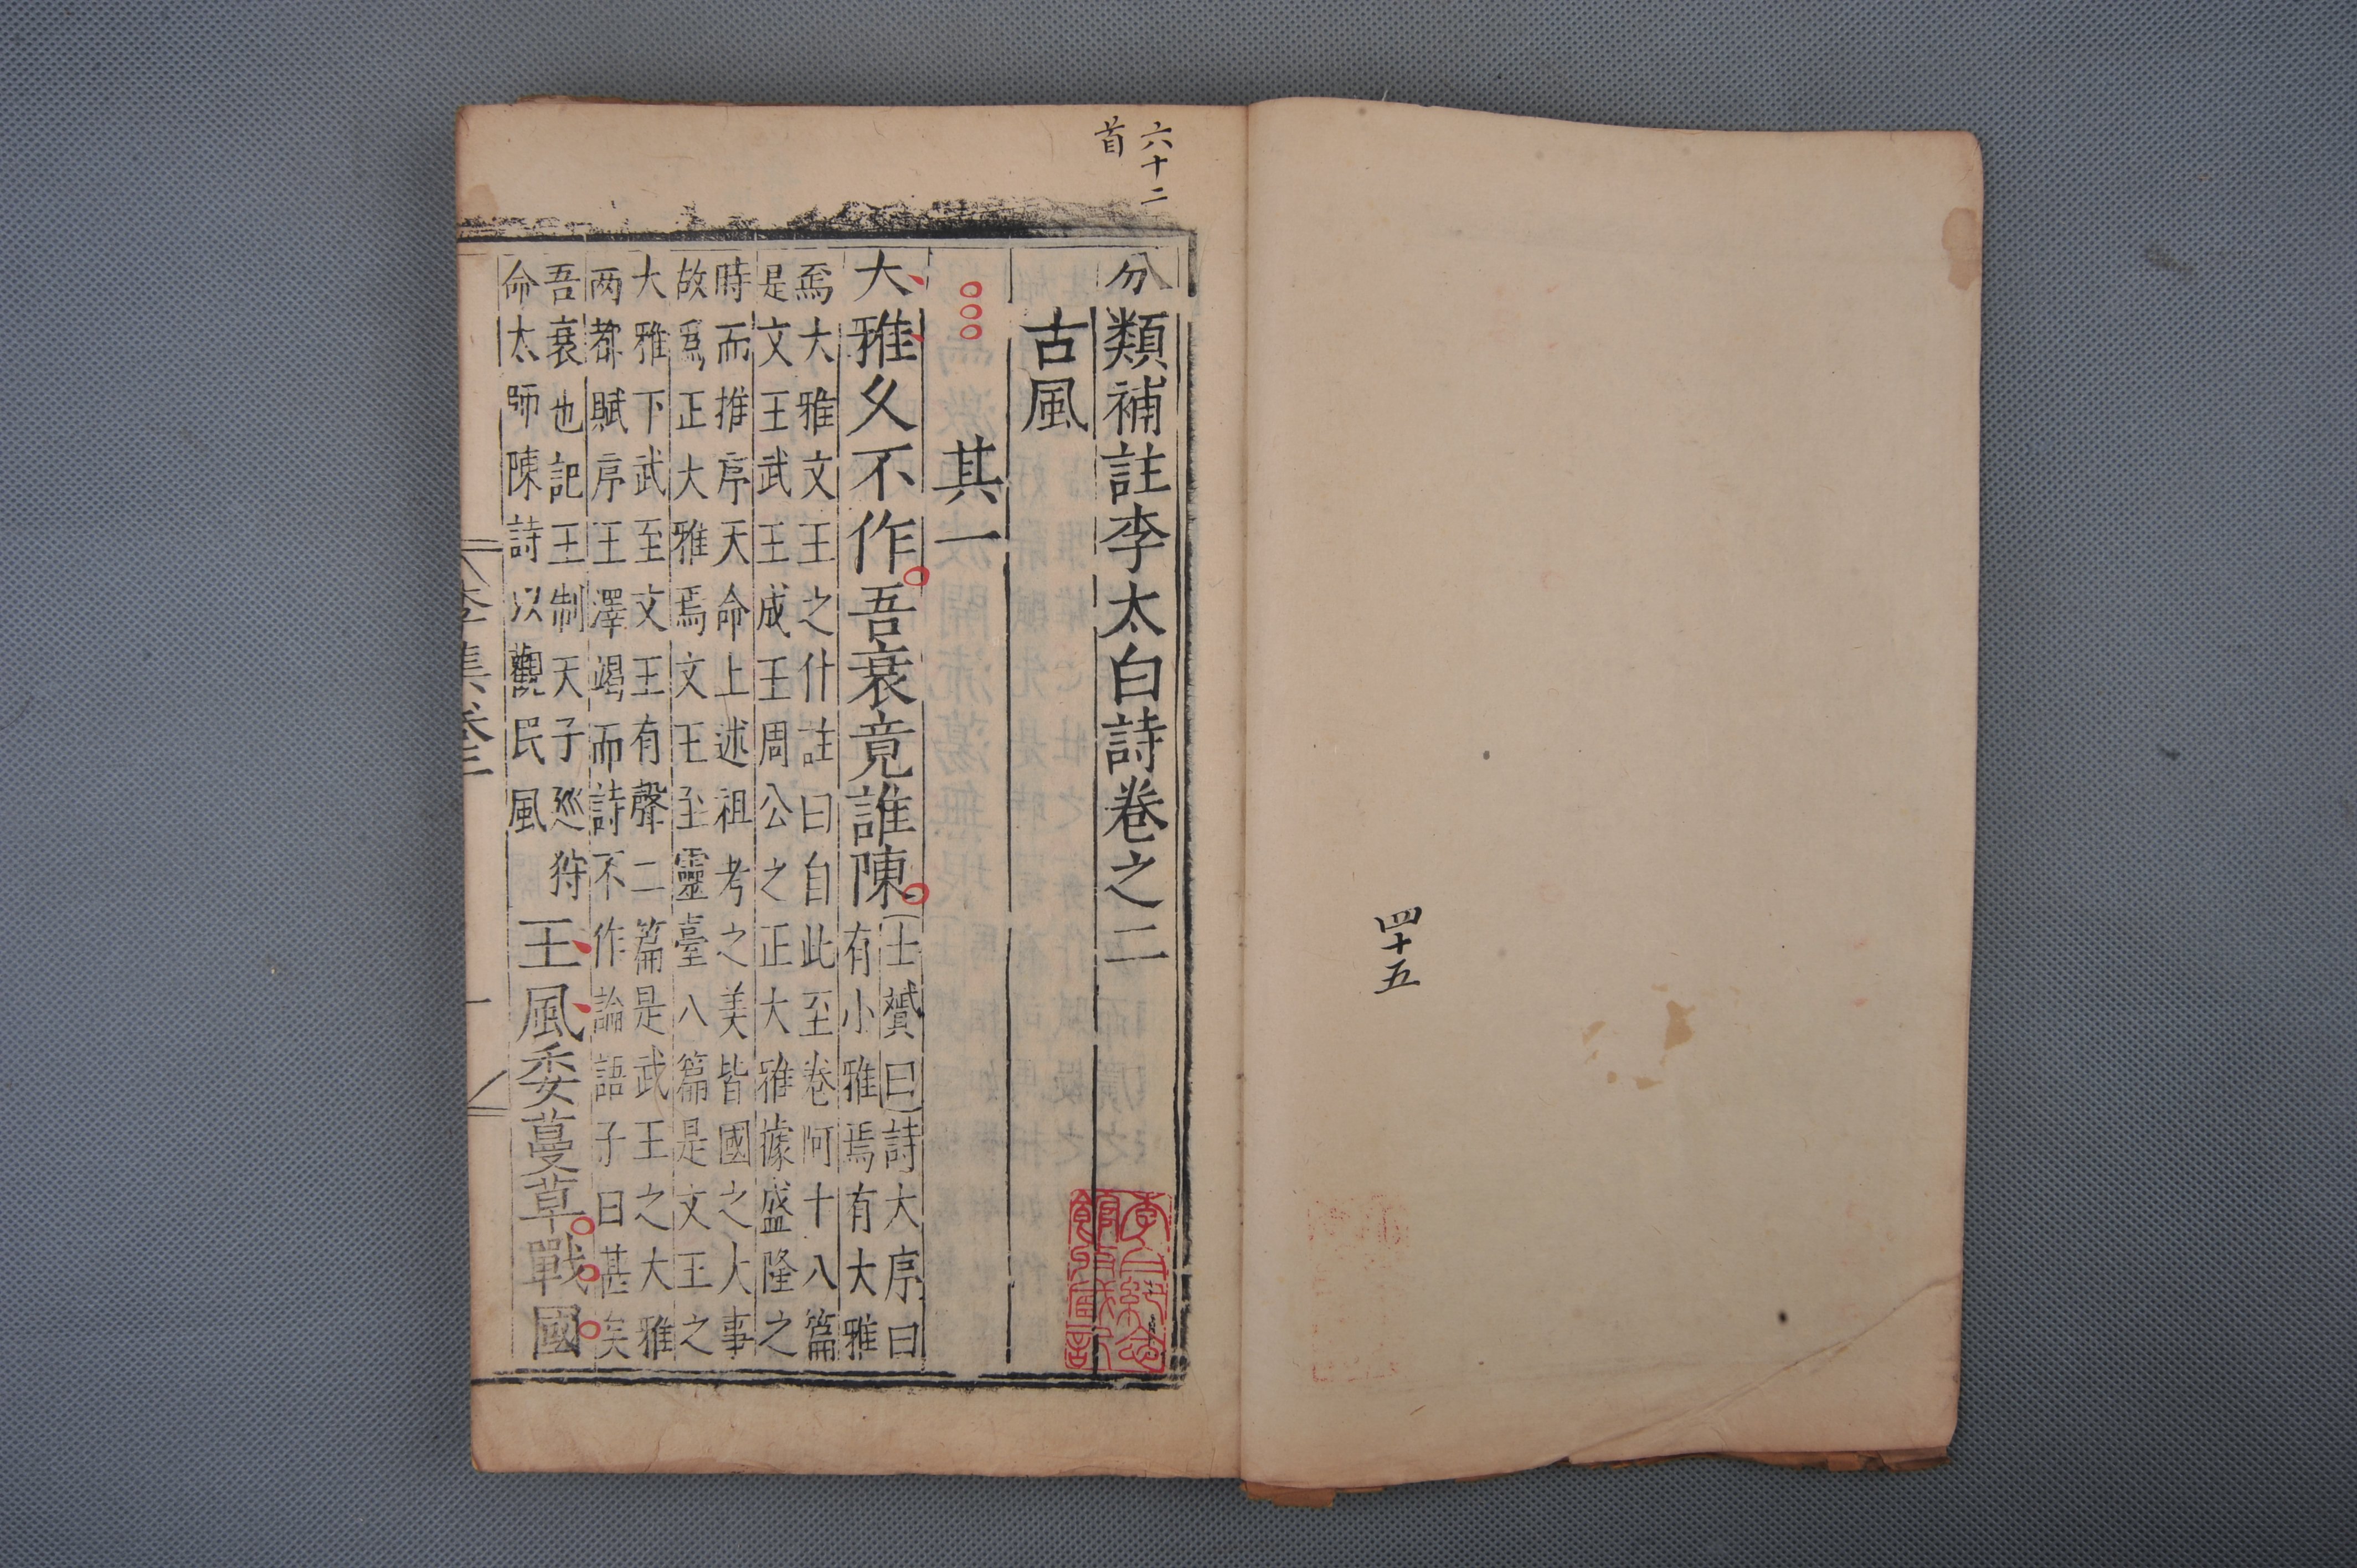 四十五
六十二
首
分類補註李太白詩卷之二
古風
其一
大雅久不作吾衰竟誰陳
士贇曰詩大序曰
有小雅焉有大雅
焉大雅文王之什註曰自此至卷阿十八篇
是文王武王成王周公之正大雅據盛隆之
時而推序天命上述祖考之美皆國之大事
故為正大雅焉文王至靈臺八篇是文王之
大雅下武至文王有聲二篇是武王之大雅
兩都賦序王澤竭而詩不作論語子曰甚矣
吾衰也記王制天子廵狩
命太師陳詩以觀民風
王風委蔓草戰國
李集卷二
一